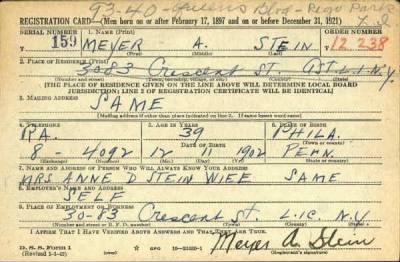 93-40-Queens Blvd-Rego Park
L.I.
REGISTRATION CARD—(Men born on or after February 17, 1897 and on or before December 31, 1921)
SERIAL NUMBER 1. NAME (Print) ORDER NUMBER
159 MEYER A. STEIN 12,238
(First) (Middle) (Last)
2. PLACE OF RESIDENCE (Print)
30-83 Crescent St. AST. L.I. N.Y.
[THE PLACE OF RESIDENCE GIVEN ON THE LINE ABOVE WILL DETERMINE LOCAL BOARD
JURISDICTION; LINE 2 OF REGISTRATION CERTIFICATE WILL BE IDENTICAL]
3. MAILING ADDRESS
SAME
[Mailing address if other than place indicated on line 2. If same insert word same]
4. TELEPHONE 5. AGE IN YEARS 6. PLACE OF BIRTH
RA. 39 PHILA.
DATE OF BIRTH
8-4092 12 11 1902 PENN.
(Exchange) (Number) (Mo.) (Day) (Yr.) (State or country)
7. NAME AND ADDRESS OF PERSON WHO WILL ALWAYS KNOW YOUR ADDRESS
MRS. ANNE D STEIN WIFE SAME
8. EMPLOYER'S NAME AND ADDRESS
SELF
9. PLACE OF EMPLOYMENT OR BUSINESS
30-83 Crescent St. L.I.C. N.Y.
(Number and street or R. F. D. number) (Town) (County) (State)
I AFFIRM THAT I HAVE VERIFIED ABOVE ANSWERS AND THAT THEY ARE TRUE.
D. S. S. Form 1
(Revised 1-1-42) GPO Meyer A. Stein